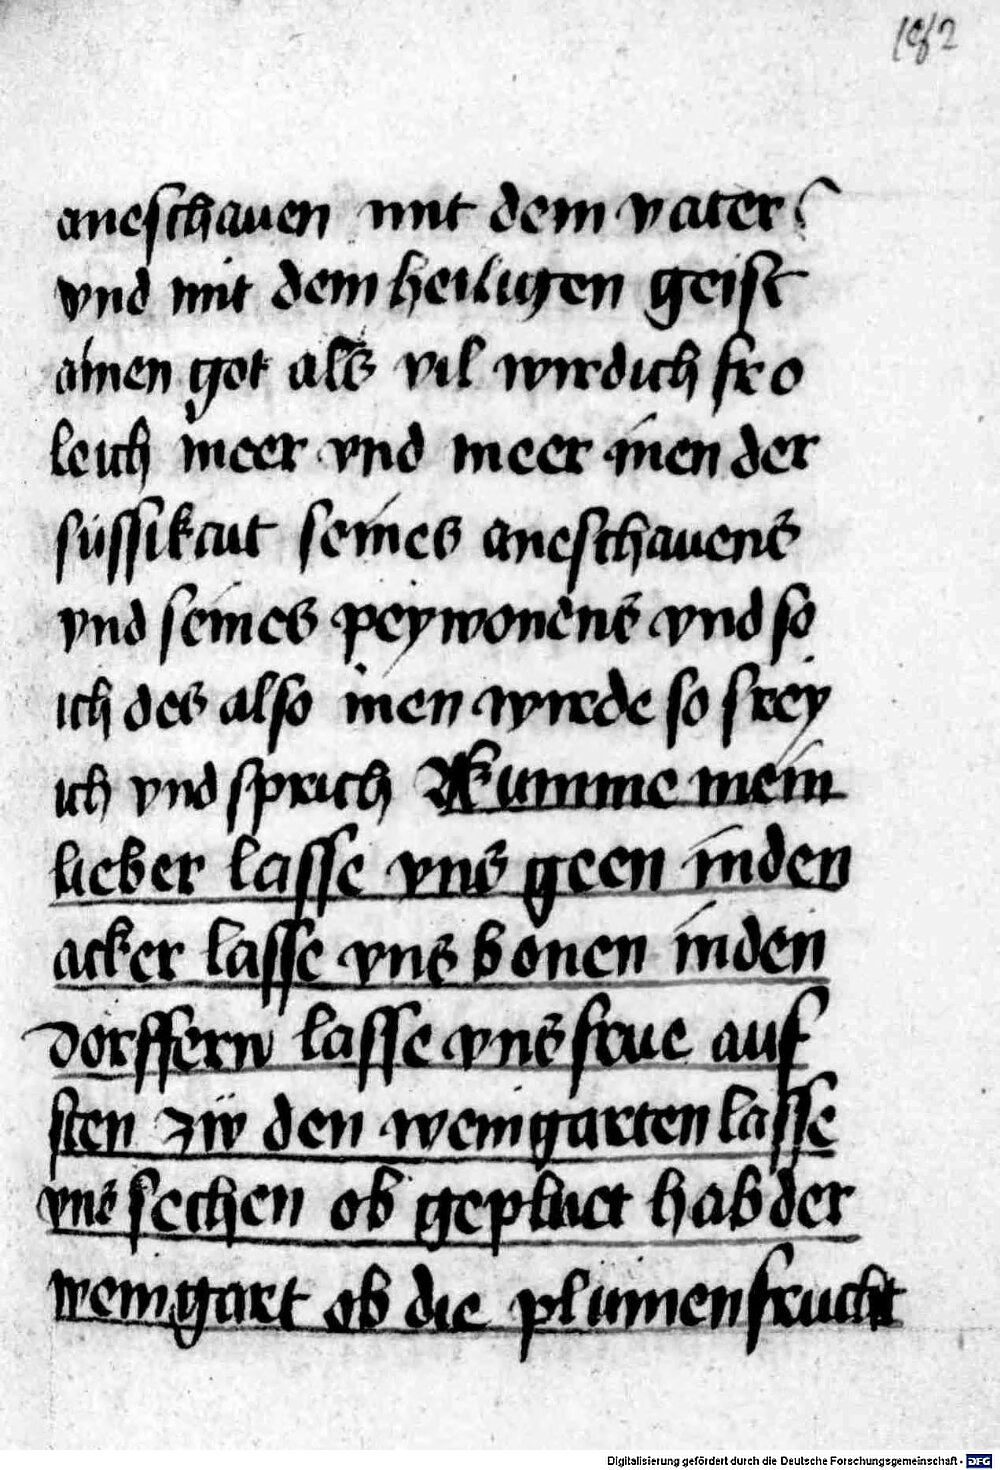 182
aneschauen mit dem vater
vnd mit dem heiligen geist
ainen got als vil wird ich fro
leich meer vnd meer innen der
süssikait seines aneschauens
vnd seines peywonens vnd so
ich des also innen wirde so frey
ich vnd sprich Kumme mein
lieber lasse vns geen in den
acker lasse vns bonen in den
dorffern lasse vns frue auf
sten zw den weingarten lasse
vns sechen ob gepluet hab der
weingart ob die plumen frucht
Digitalisierung gefördert durch die Deutsche Forschungsgemeinschaft - DFG